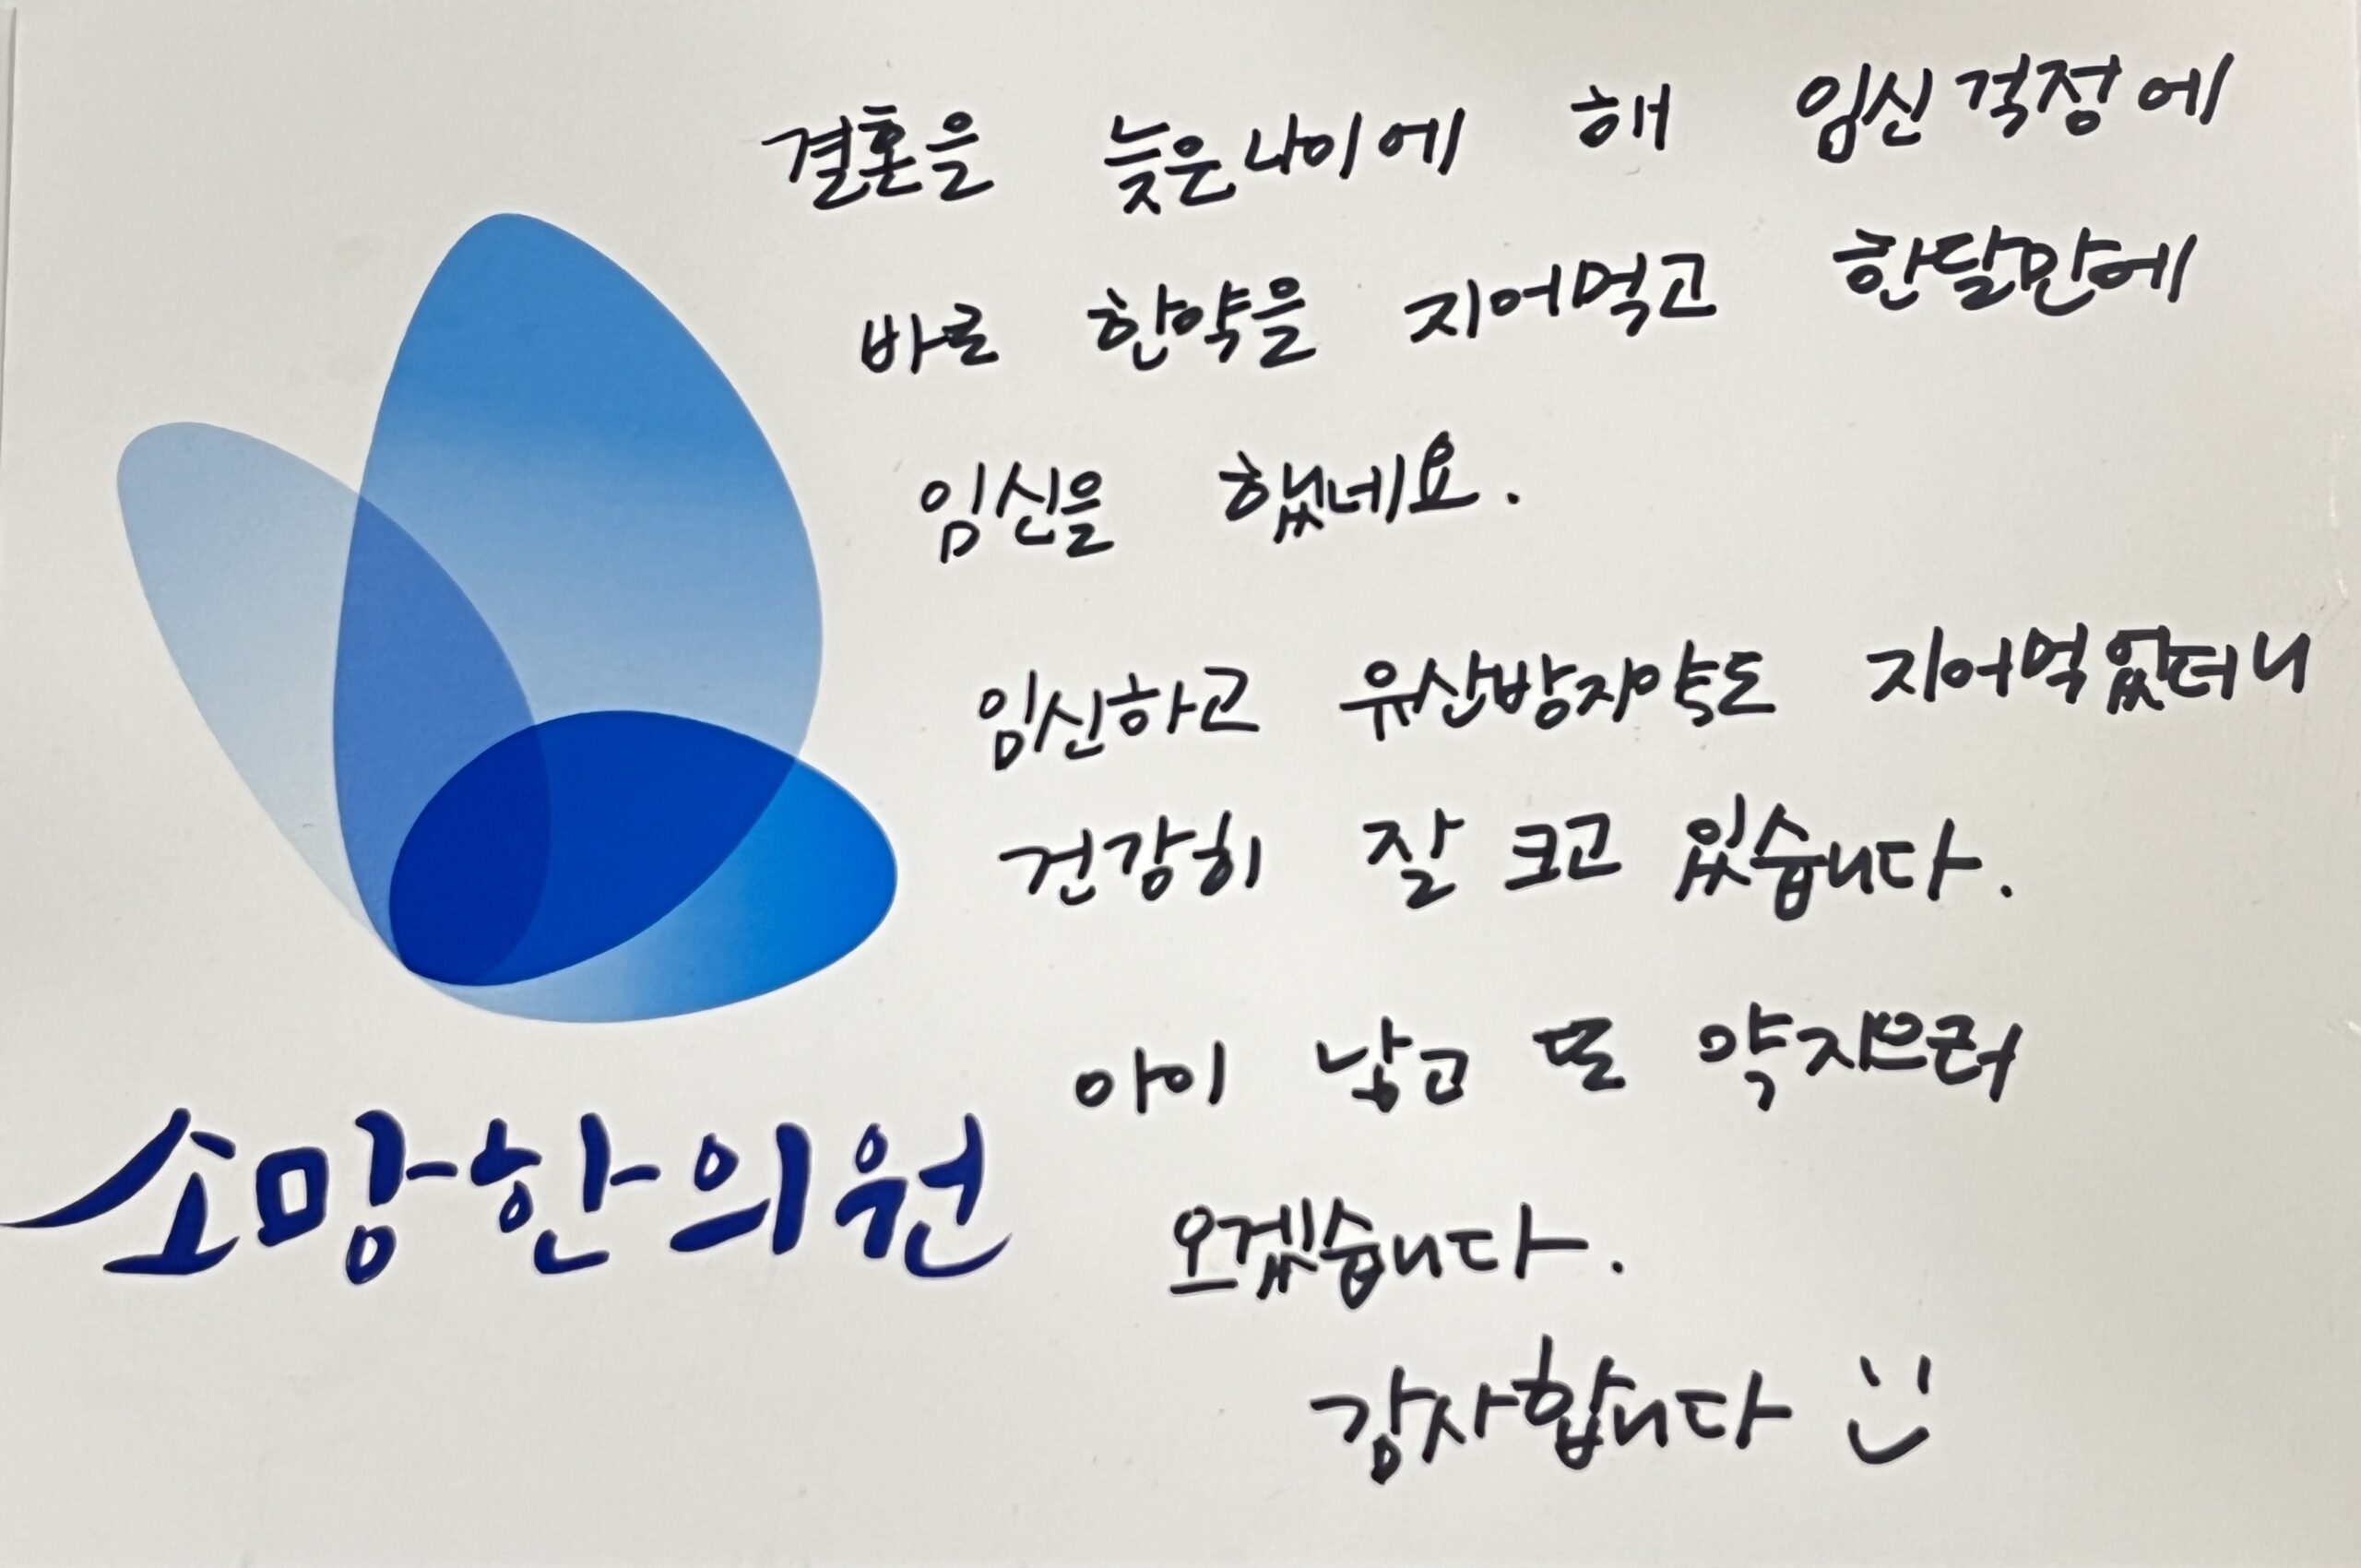 결혼을 늦은나이에 해 임신걱정에
바로 한약을 지어먹고 한달만에
임신을 했네요.
임신하고 유산방지약도 지어먹었더니
건강히 잘 크고 있습니다.
아이 낳고 또 약지으러
오겠습니다.
감사합니다
소망한의원